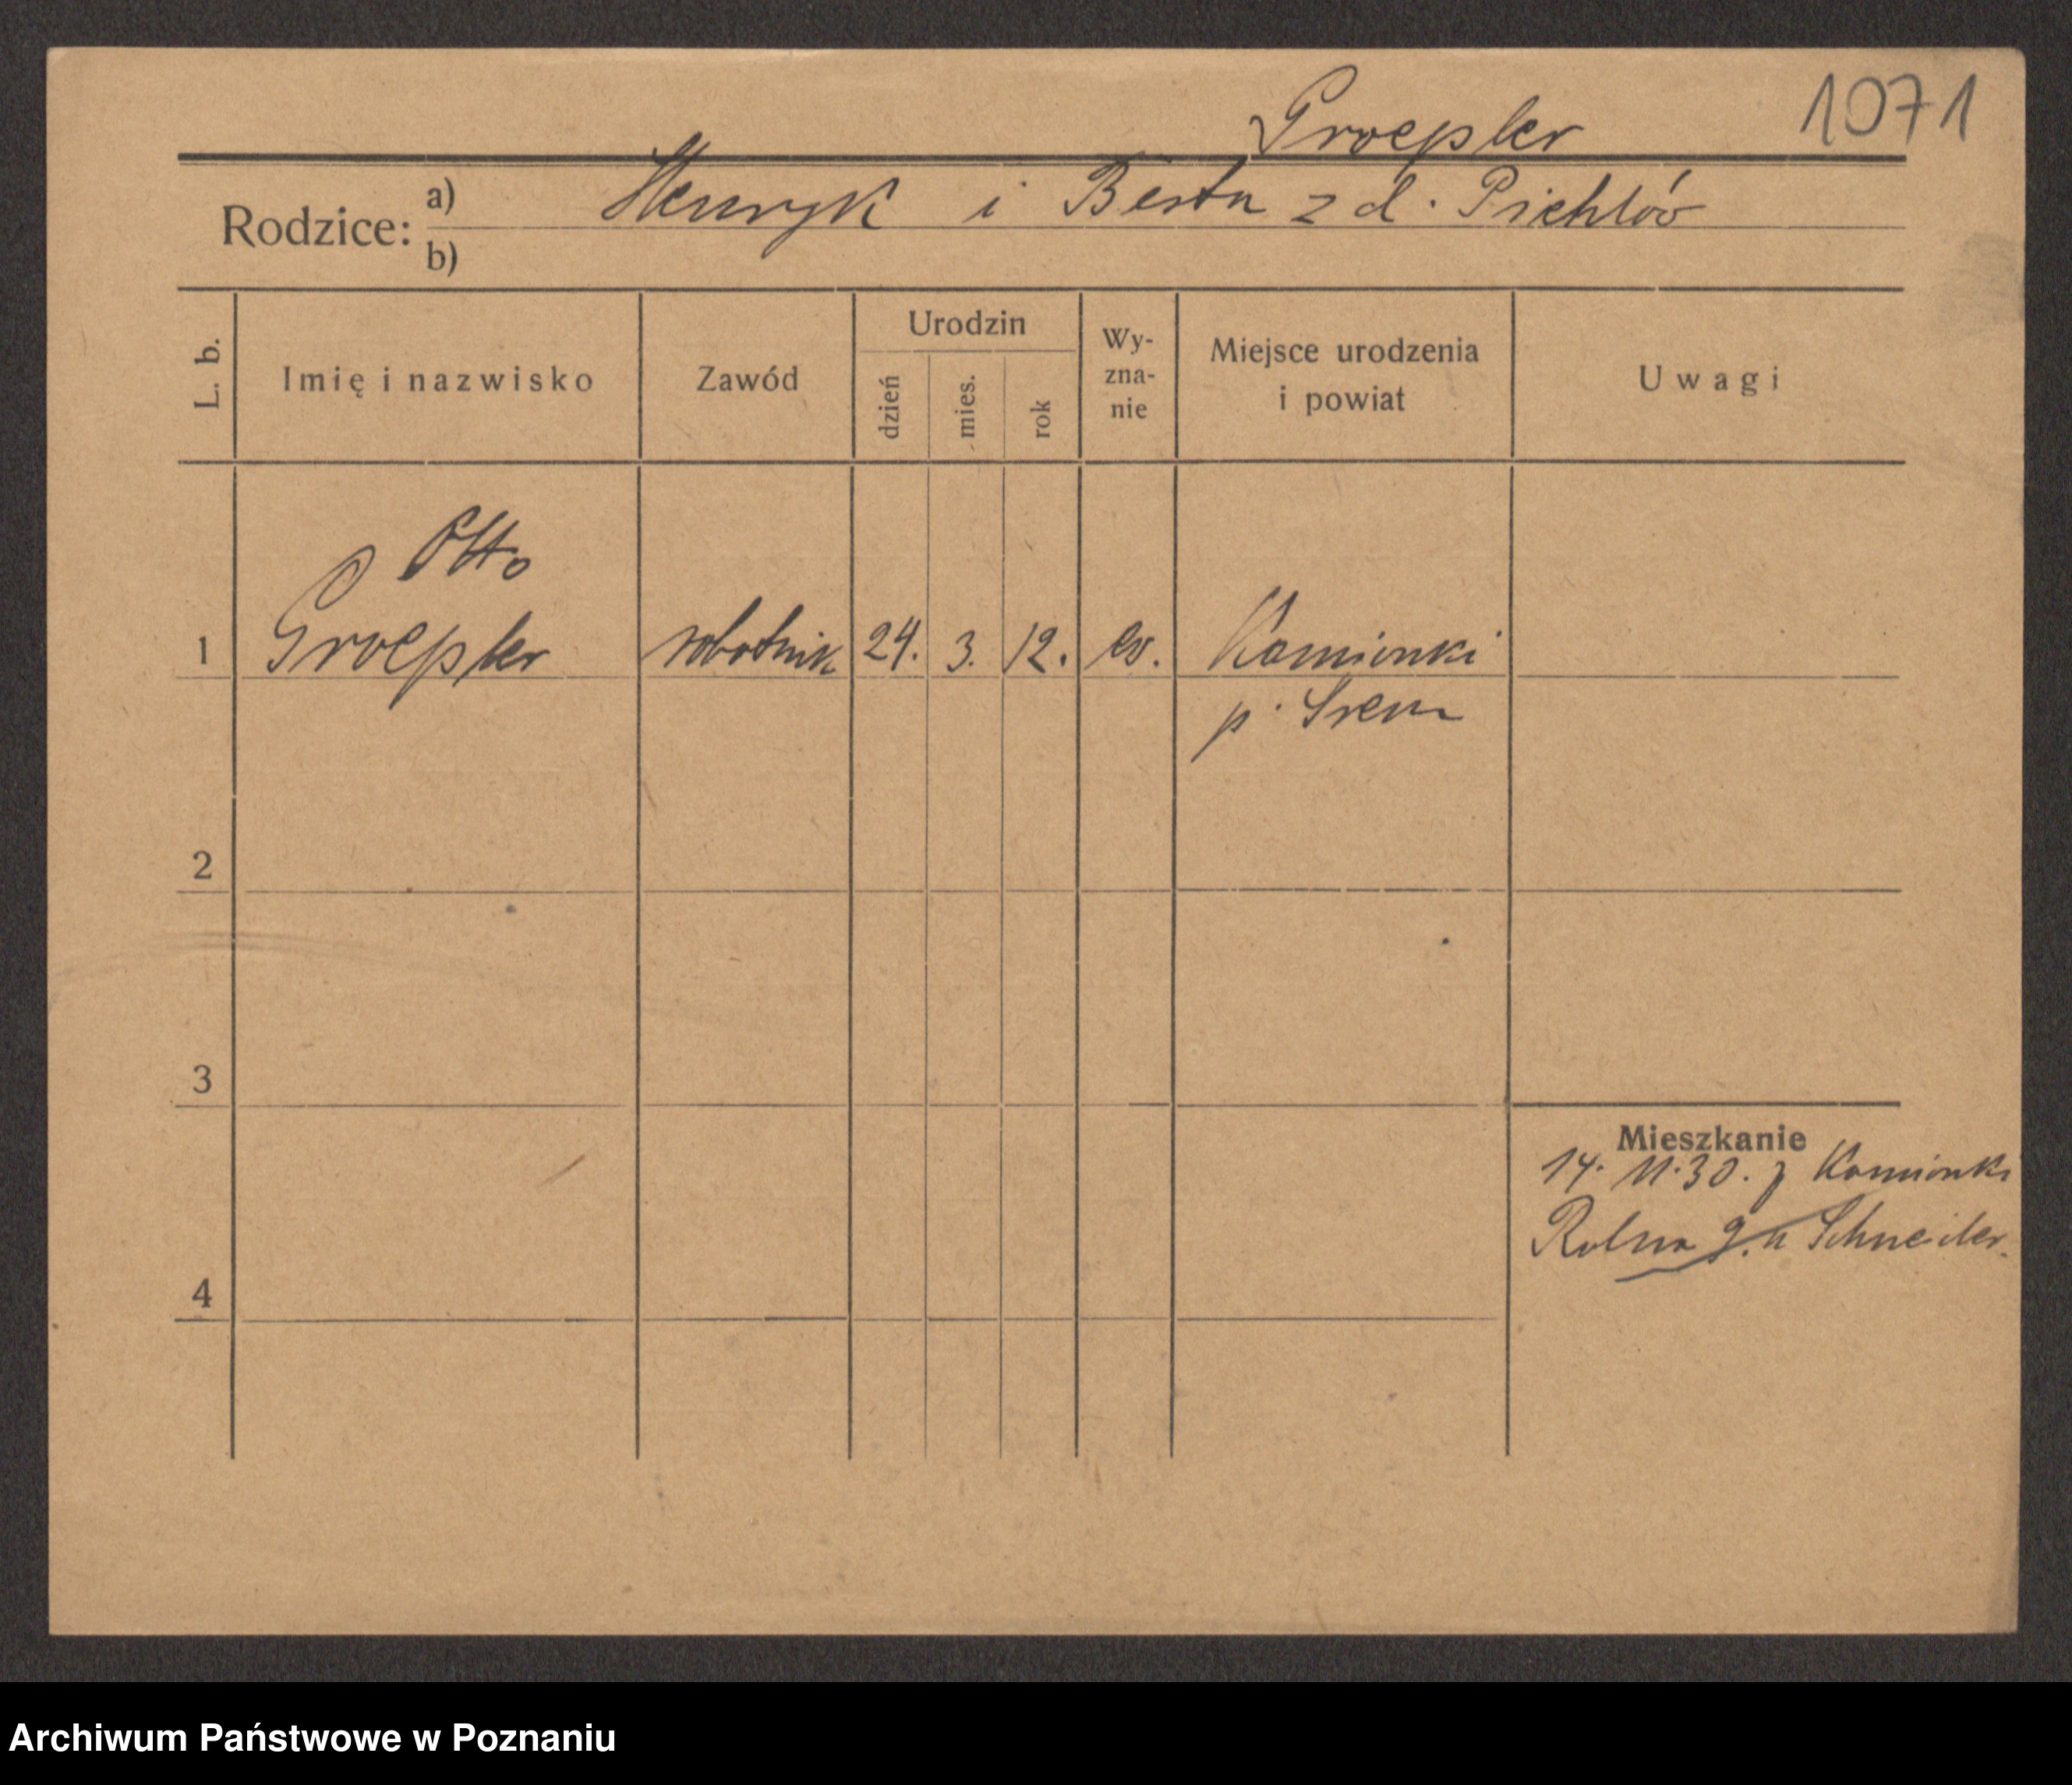 Groepler 1071
Rodzice: a) Henryk i Berta z d. Piehlów
b)
L. b. Imię i nazwisko Zawód Urodzin dzień mies. rok Wy-zna-nie Miejsce urodzenia i powiat Uwagi
Otto
1 Groepler robotnik 24. 3. 12. ev. Kamionki
p. Srem
2
3
Mieszkanie
14. 11. 30. z Kamionki
Rolna 9. u Schneider.
4
Archiwum Państwowe w Poznaniu